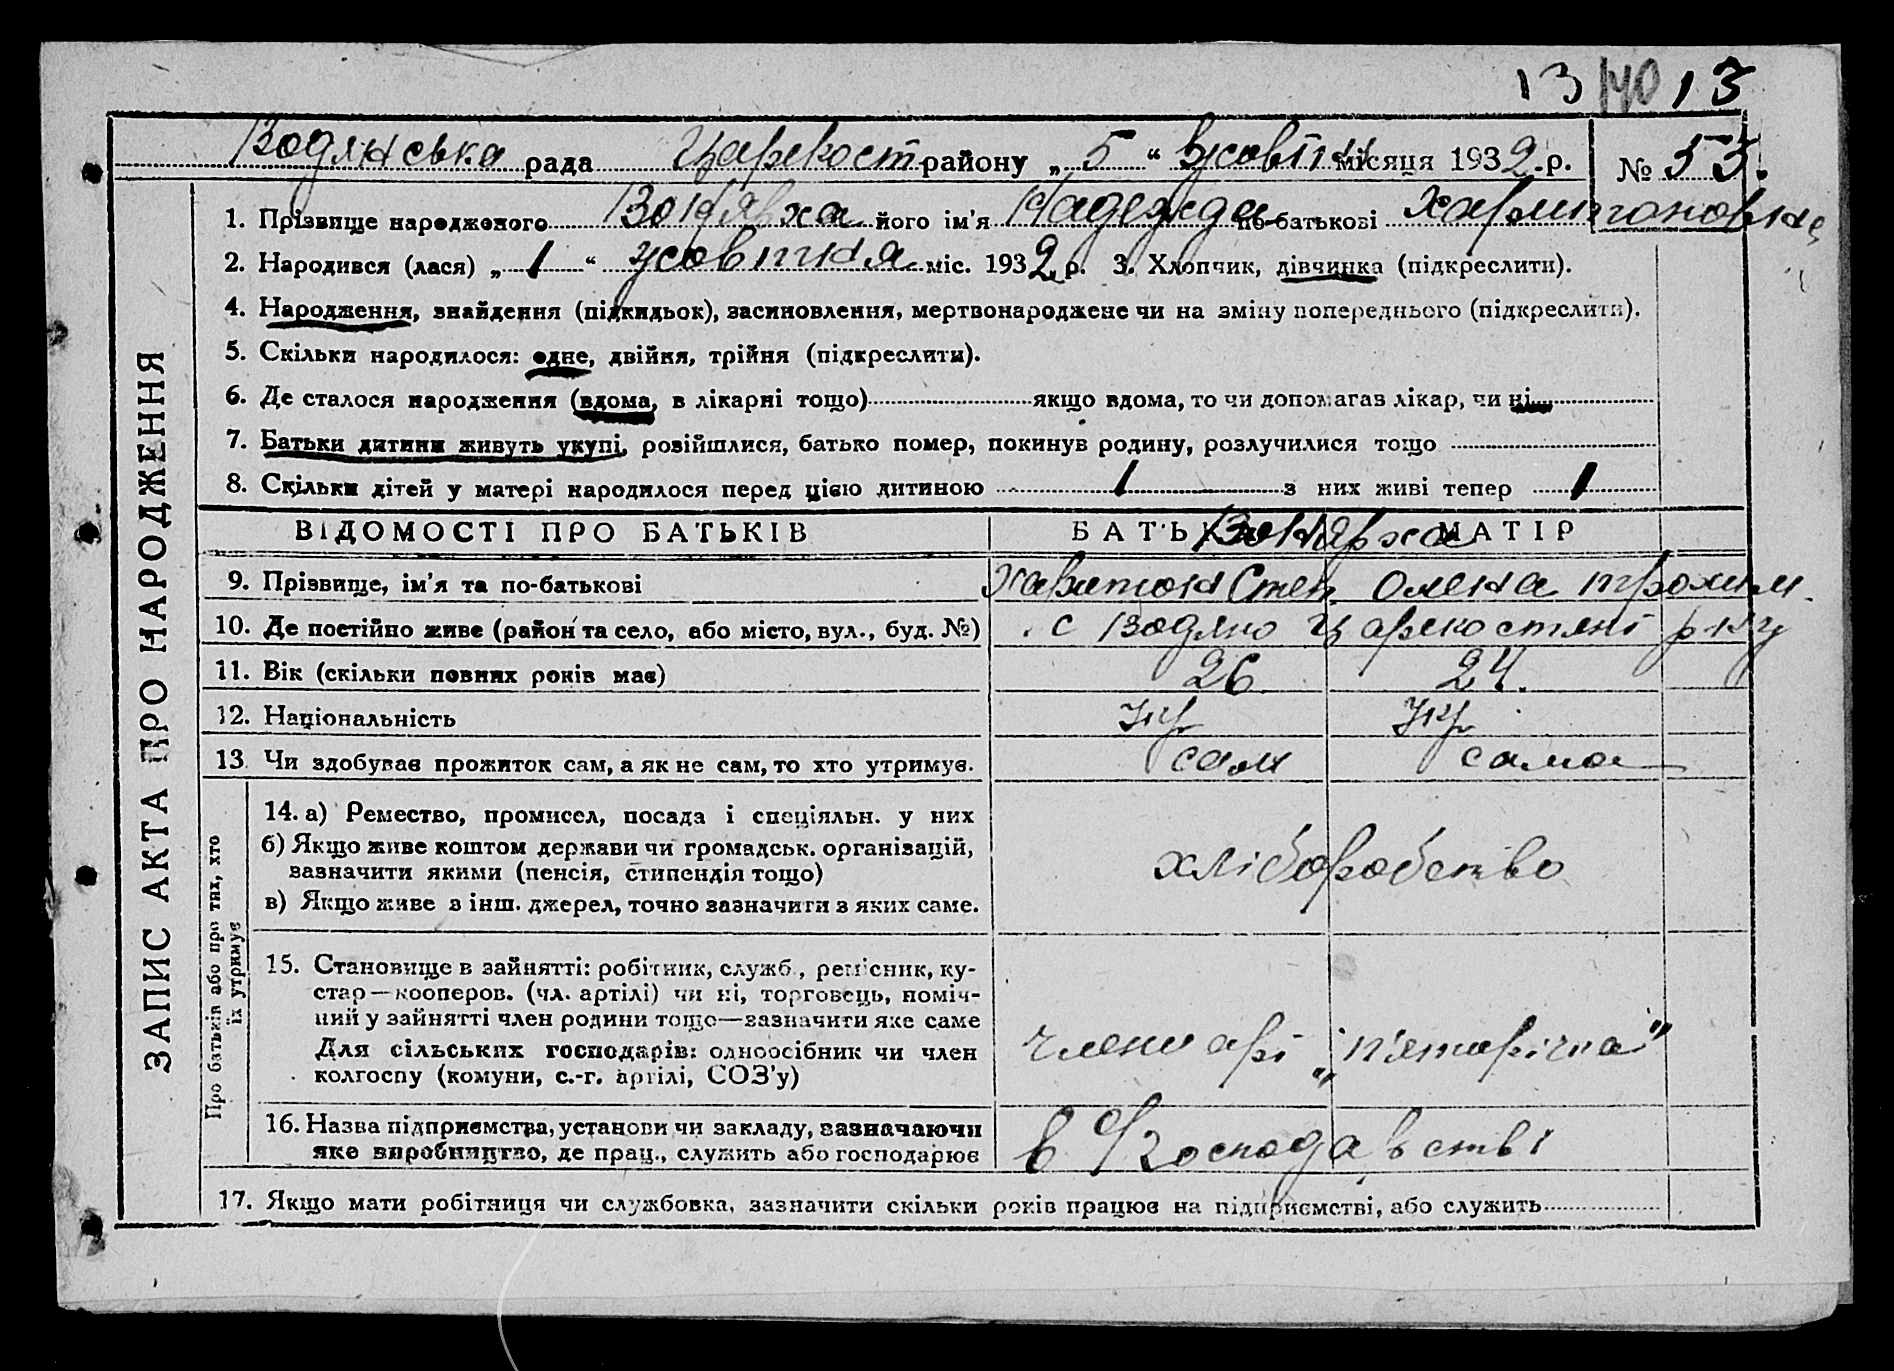 13 140 13
Водянська рада Царекост району „ 5 “ жовтня місяця 1932 р. № 53.
1. Прізвище народженого його ім'я Надежда по-батькові Харитоновна
2. Народився (лася) „ 1 “ жовтня міс. 1932 р. 3. Хлопчик, дівчинка (підкреслити).
4. Народження, знайдення (підкидьок), засиновлення, мертвонароджене чи на зміну попереднього (підкреслити).
5. Скільки народилося: одне, двійня, трійня (підкреслити).
6. Де сталося народження (вдома, в лікарні тощо) якщо вдома, то чи допомагав лікар, чи ні
7. Батьки дитини живуть укупі, розійшлися, батько помер, покинув родину, розлучилися тощо
8. Скільки дітей у матері народилося перед цією дитиною 1 з них живі тепер 1
ВІДОМОСТІ ПРО БАТЬКІВ БАТЬКО МАТІР
9. Прізвище, ім'я та по-батькові Харитон Степ. Олена Трохим.
10. Де постійно живе (район та село, або місто, вул., буд. №) с Водяно Царекостянт р-ну
11. Вік (скільки повних років має) 26 24.
12. Національність Укр Укр
13. Чи здобував прожиток сам, а як не сам, то хто утримує. сам сама
14. а) Ремество, промисел, посада і спеціяльн. у них
б) Якщо живе коштом держави чи громадськ. організацій,
зазначити якими (пенсія, стипендія тощо)
в) Якщо живе з інш. джерел, точно зазначити з яких саме.
хліборобство
15. Становище в зайнятті: робітник, служб., ремісник, ку-
стар—кооперов. (чл. артілі) чи ні, торговець, поміч-
ний у зайнятті член родини тощо—зазначити яке саме
Для сільських господарів: одноосібник чи член
колгоспу (комуни, с.-г. артілі, СОЗ'у)
члени арт „П'ятирічка"
16. Назва підприємства, установи чи закладу, зазначаючи
яке виробництво, де прац., служить або господарює
в с/господарстві
17. Якщо мати робітниця чи службовка, зазначити скільки років працює на підприємстві, або служить
ЗАПИС АКТА ПРО НАРОДЖЕННЯ
Про батьків або про тих, хто
їх утримує